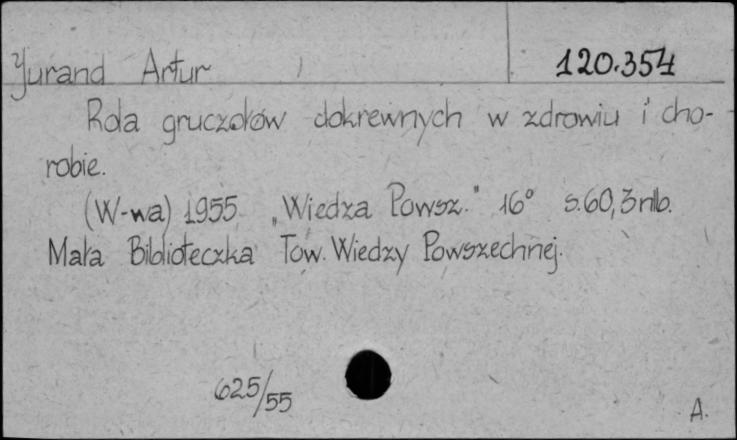 Jurand Artur 120.354
Rola gruczołów dokrewnych w zdrowiu i cho-
robie.
(W-wa) 1955 "Wiedza Powsz." 16° s.60,3nlb.
Mała Biblioteczka Tow. Wiedzy Powszechnej.
625/55
A.